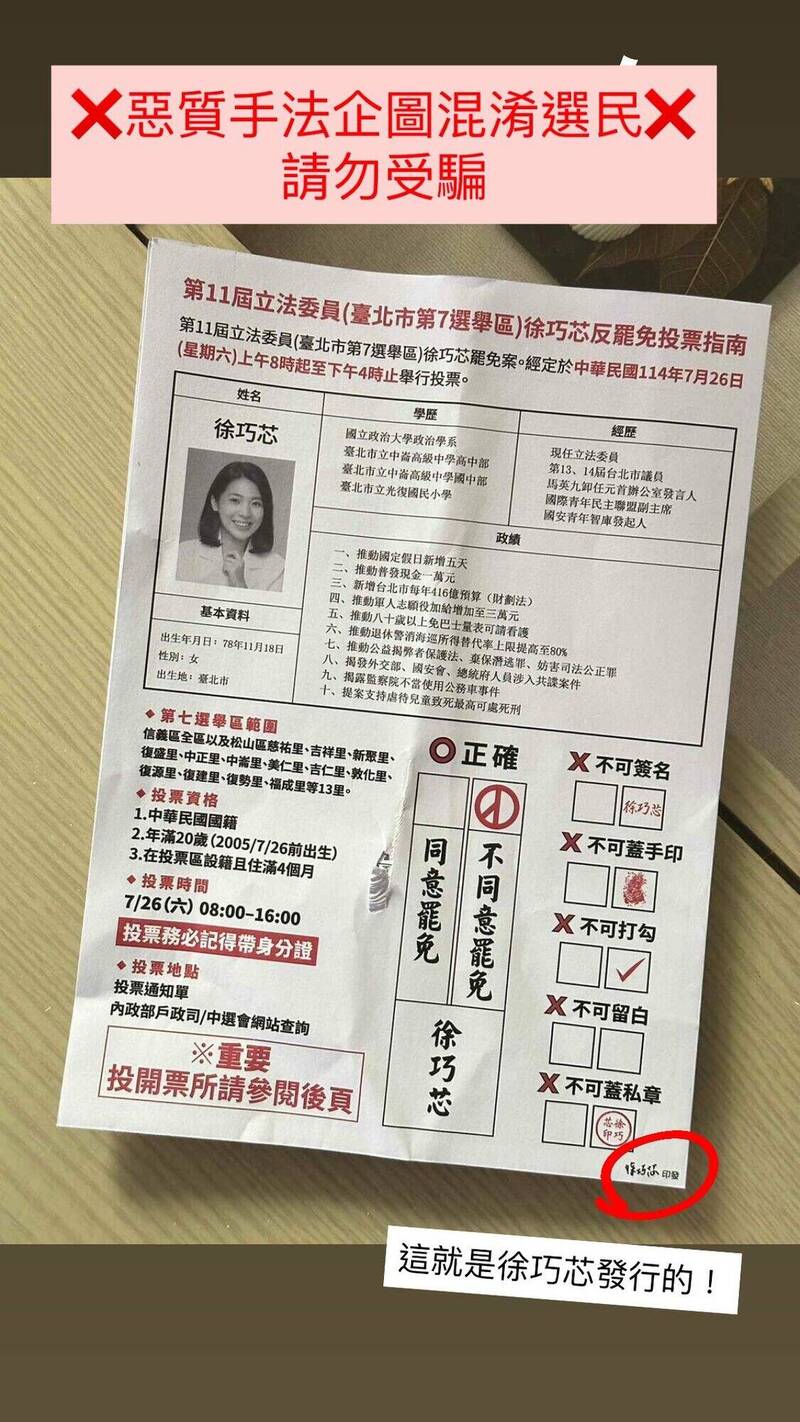 ❌惡質手法企圖混淆選民❌
請勿受騙
第11屆立法委員(臺北市第7選舉區)徐巧芯反罷免投票指南
第11屆立法委員(臺北市第7選舉區)徐巧芯罷免案。經定於中華民國114年7月26日
(星期六)上午8時起至下午4時止舉行投票。
姓名
徐巧芯
學歷
國立政治大學政治學系
臺北市立中崙高級中學高中部
臺北市立中崙高級中學國中部
臺北市立光復國民小學
經歷
現任立法委員
第13、14屆台北市議員
馬英九卸任元首辦公室發言人
國際青年民主聯盟副主席
國安青年智庫發起人
政績
一、推動國定假日新增五天
二、推動普發現金一萬元
三、新增台北市每年416億預算（財劃法）
四、推動軍人志願役加給增加至三萬元
五、推動八十歲以上免巴士量表可請看護
六、推動退休警消海巡所得替代率上限提高至80%
七、推動公益揭弊者保護法、棄保潛逃罪、妨害司法公正罪
八、揭發外交部、國安會、總統府人員涉入共諜案件
九、揭露監察院不當使用公務車事件
十、提案支持虐待兒童致死最高可處死刑
基本資料
出生年月日：78年11月18日
性別：女
出生地：臺北市
◆第七選舉區範圍
信義區全區以及松山區慈祐里、吉祥里、新聚里、
復盛里、中正里、中崙里、美仁里、吉仁里、敦化里、
復源里、復建里、復勢里、福成里等13里。
◆投票資格
1.中華民國國籍
2.年滿20歲（2005/7/26前出生）
3.在投票區設籍且住滿4個月
◆投票時間
7/26（六）08:00–16:00
投票務必記得帶身分證
◆投票地點
投票通知單
內政部戶政司/中選會網站查詢
※重要
投開票所請參閱後頁
⭕正確
同意罷免
不同意罷免
徐巧芯
X不可簽名
徐巧芯
X不可蓋手印
X不可打勾
✓
X不可留白
X不可蓋私章
徐巧芯印
徐巧芯 印發
這就是徐巧芯發行的！